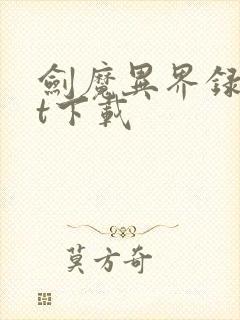 劍魔異界録
t下載
莫方奇